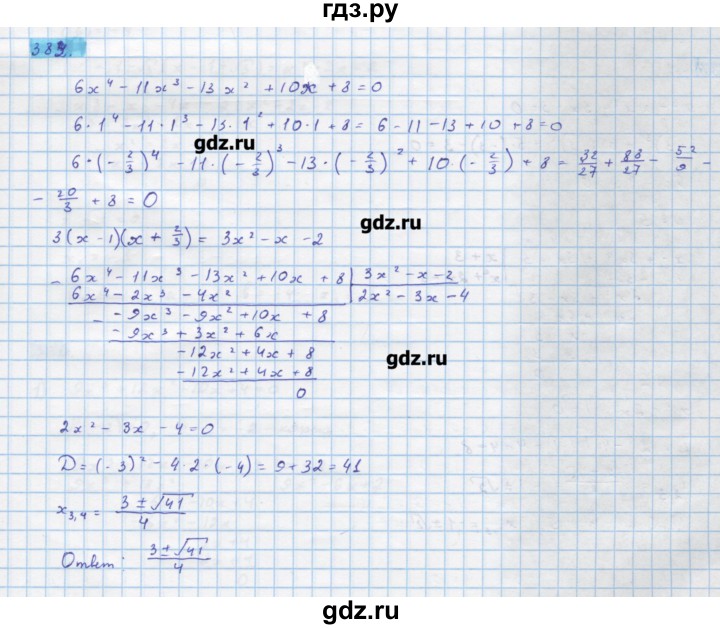 гдз.ру
383.
6x⁴ - 11x³ - 13x² + 10x + 8 = 0
6·1⁴ - 11·1³ - 13·1² + 10·1 + 8 = 6 - 11 - 13 + 10 + 8 = 0
gdz.ru
6·(-2/3)⁴ - 11·(-2/3)³ - 13·(-2/3)² + 10·(-2/3) + 8 = 32/27 + 88/27 - 52/9 -
- 20/3 + 8 = 0
gdz.ru
3(x - 1)(x + 2/3) = 3x² - x - 2
- 6x⁴ - 11x³ - 13x² + 10x + 8 | 3x² - x - 2
6x⁴ - 2x³ - 4x² | 2x² - 3x - 4
- - 9x³ - 9x² + 10x + 8
- 9x³ + 3x² + 6x
- 12x² + 4x + 8
gdz.ru
- 12x² + 4x + 8
0
2x² - 3x - 4 = 0
D = (-3)² - 4·2·(-4) = 9 + 32 = 41
x₃,₄ = (3 ± √41)/4
gdz.ru
Ответ: (3 ± √41)/4
gdz.ru